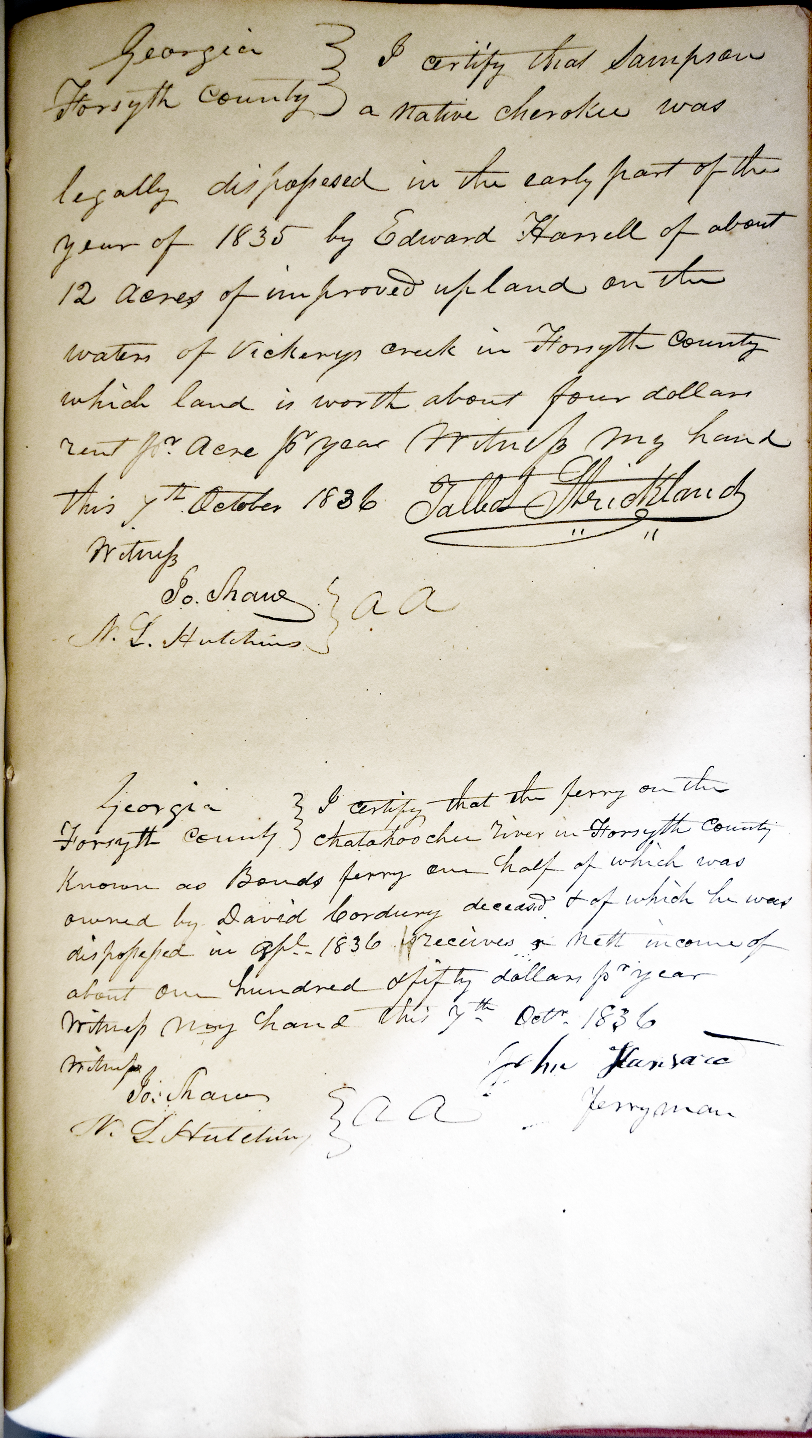 Georgia } I certify that Sampson
Forsyth County } a native cherokee was
legally dispossesed in the early part of the
year of 1835 by Edward Harrell of about
12 acres of improved upland on the
waters of Vickerys creek in Forsyth County
which land is worth about four dollars
rent pr. Acre pr year Witness my hand
this 7th October 1836 Talbot Strickland
Witness
Jo. Shaw } a a
N. L. Hutchins }
Georgia } I certify that the ferry on the
Forsyth County } chatahoochee river in Forsyth County
Known as Bonds ferry one half of which was
owned by David Cordury deceasd. & of which he was
dispossessed in 1836 receives a nett income of
about one hundred & fifty dollars pr year
Witness my hand this 7th Octr. 1836
Witness John
Jo: Shaw } a a Ferryman
N. L. Hutchins }